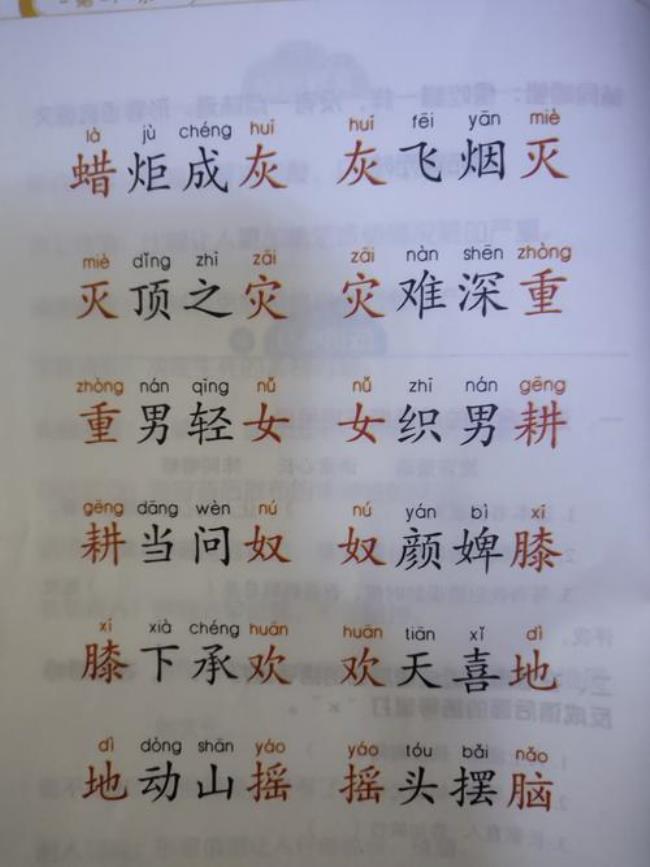 là jù chéng huī huī fēi yān miè
蜡炬成灰 灰飞烟灭
miè dǐng zhī zāi zāi nàn shēn zhòng
灭顶之灾 灾难深重
zhòng nán qīng nǚ nǚ zhī nán gēng
重男轻女 女织男耕
gēng dāng wèn nú nú yán bì xī
耕当问奴 奴颜婢膝
xī xià chéng huān huān tiān xǐ dì
膝下承欢 欢天喜地
dì dòng shān yáo yáo tóu bǎi nǎo
地动山摇 摇头摆脑